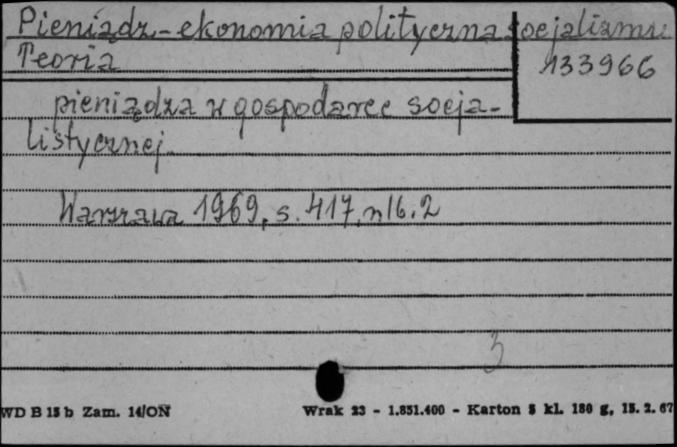 Pieniądz - ekonomia polityczna socjalizmu
133966
Teoria
pieniądza w gospodarce socja-
listycznej.
Warszawa 1969, s. 417, nlb. 2
3
WD B 15 b Zam. 14/ON
Wrak 23 - 1.851.400 - Karton 5 kl. 180 g, 15. 2. 67